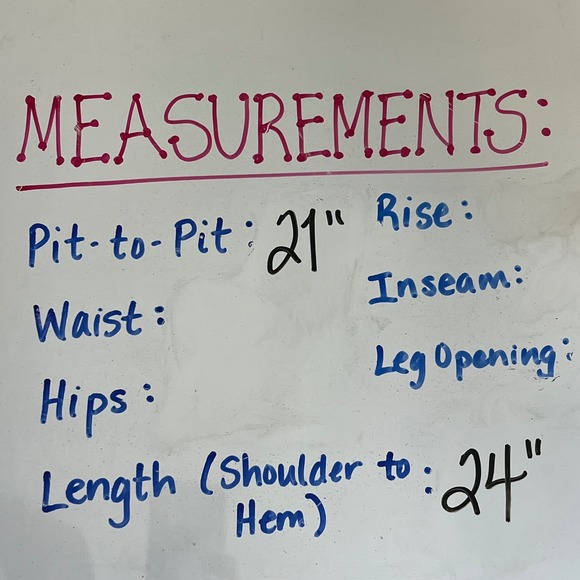 MEASUREMENTS:
Pit-to-Pit: 21"
Waist:
Hips:
Length (Shoulder to Hem): 24"
Rise:
Inseam:
Leg Opening: